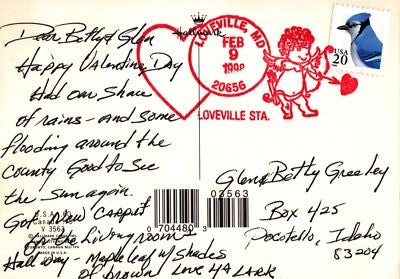 Dear Betty & Glen
Happy Valentine Day
Had our Share
of rains - and some
flooding around the
county Good to See
the Sun again.
Got New Carpet
for the Living room &
Hall Day - Mapleleaf w/ Shades
of brown Love
Hallmark
LOVEVILLE, MD
FEB
9
1998
20656
LOVEVILLE STA.
USA
20
Glen & Betty Greeley
Box 425
Pocotello, Idaho
83204
03563
0 704480
U.S.A.
V 3563